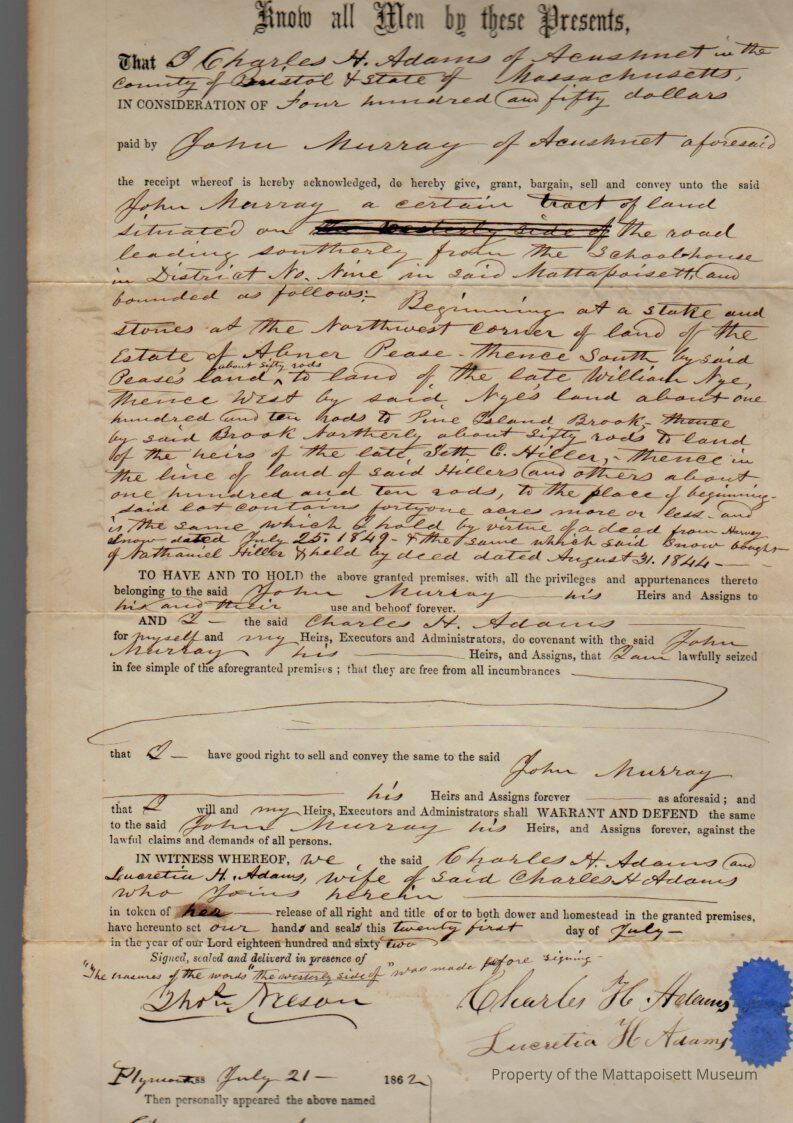 Know all Men by these Presents,
That I Charles H. Adams of Acushnet in the
county of Bristol & State of Massachusetts,
IN CONSIDERATION OF Four hundred and fifty dollars
paid by John Murray of Acushnet aforesaid
the receipt whereof is hereby acknowledged, do hereby give, grant, bargain, sell and convey unto the said
John Murray a certain tract of land
situated on the westerly side of the road
leading southerly from the Schoolhouse
in District No. Nine in said Mattapoisett, and
bounded as follows:- Beginning at a stake and
stones at the Northwest corner of land of the
Estate of Abner Pease - thence South by said
about sixty rods
Pease's land ^ to land of the late William Nye,
thence West by said Nye's land about one
hundred and ten rods to Pine Island Brook, - thence
by said Brook Northerly about sixty rods to land
of the heirs of the late Seth C. Hiller, - thence in
the line of land of said Hillers and others about
one hundred and ten rods, to the place of beginning -
said lot contains fortyone acres more or less - and
is the same which I hold by virtue of a deed from Harvey
Snow dated July 25. 1849 - & the same which said Snow bought
of Nathaniel Hiller & held by deed dated August 31. 1844 -
TO HAVE AND TO HOLD the above granted premises, with all the privileges and appurtenances thereto
belonging to the said John Murray his Heirs and Assigns to
his and their use and behoof forever.
AND I - the said Charles H. Adams
for myself and my Heirs, Executors and Administrators, do covenant with the said John
Murray his Heirs, and Assigns, that I am lawfully seized
in fee simple of the aforegranted premises ; that they are free from all incumbrances
that I - have good right to sell and convey the same to the said
John Murray
his Heirs and Assigns forever as aforesaid ; and
that I will and my Heirs, Executors and Administrators shall WARRANT AND DEFEND the same
to the said John Murray his Heirs, and Assigns forever, against the
lawful claims and demands of all persons.
IN WITNESS WHEREOF, we the said Charles H. Adams and
Lucretia H. Adams, wife of said Charles H Adams
who joins herein
in token of her release of all right and title of or to both dower and homestead in the granted premises,
have hereunto set our hands and seals this twenty first day of July -
in the year of our Lord eighteen hundred and sixty two
Signed, sealed and deliverd in presence of
"The erasures of the words "the westerly side of" was made before signing -
Charles H Adams
Lucretia H Adams
Plymouth ss July 21 - 1862
Then personally appeared the above named
Property of the Mattapoisett Museum